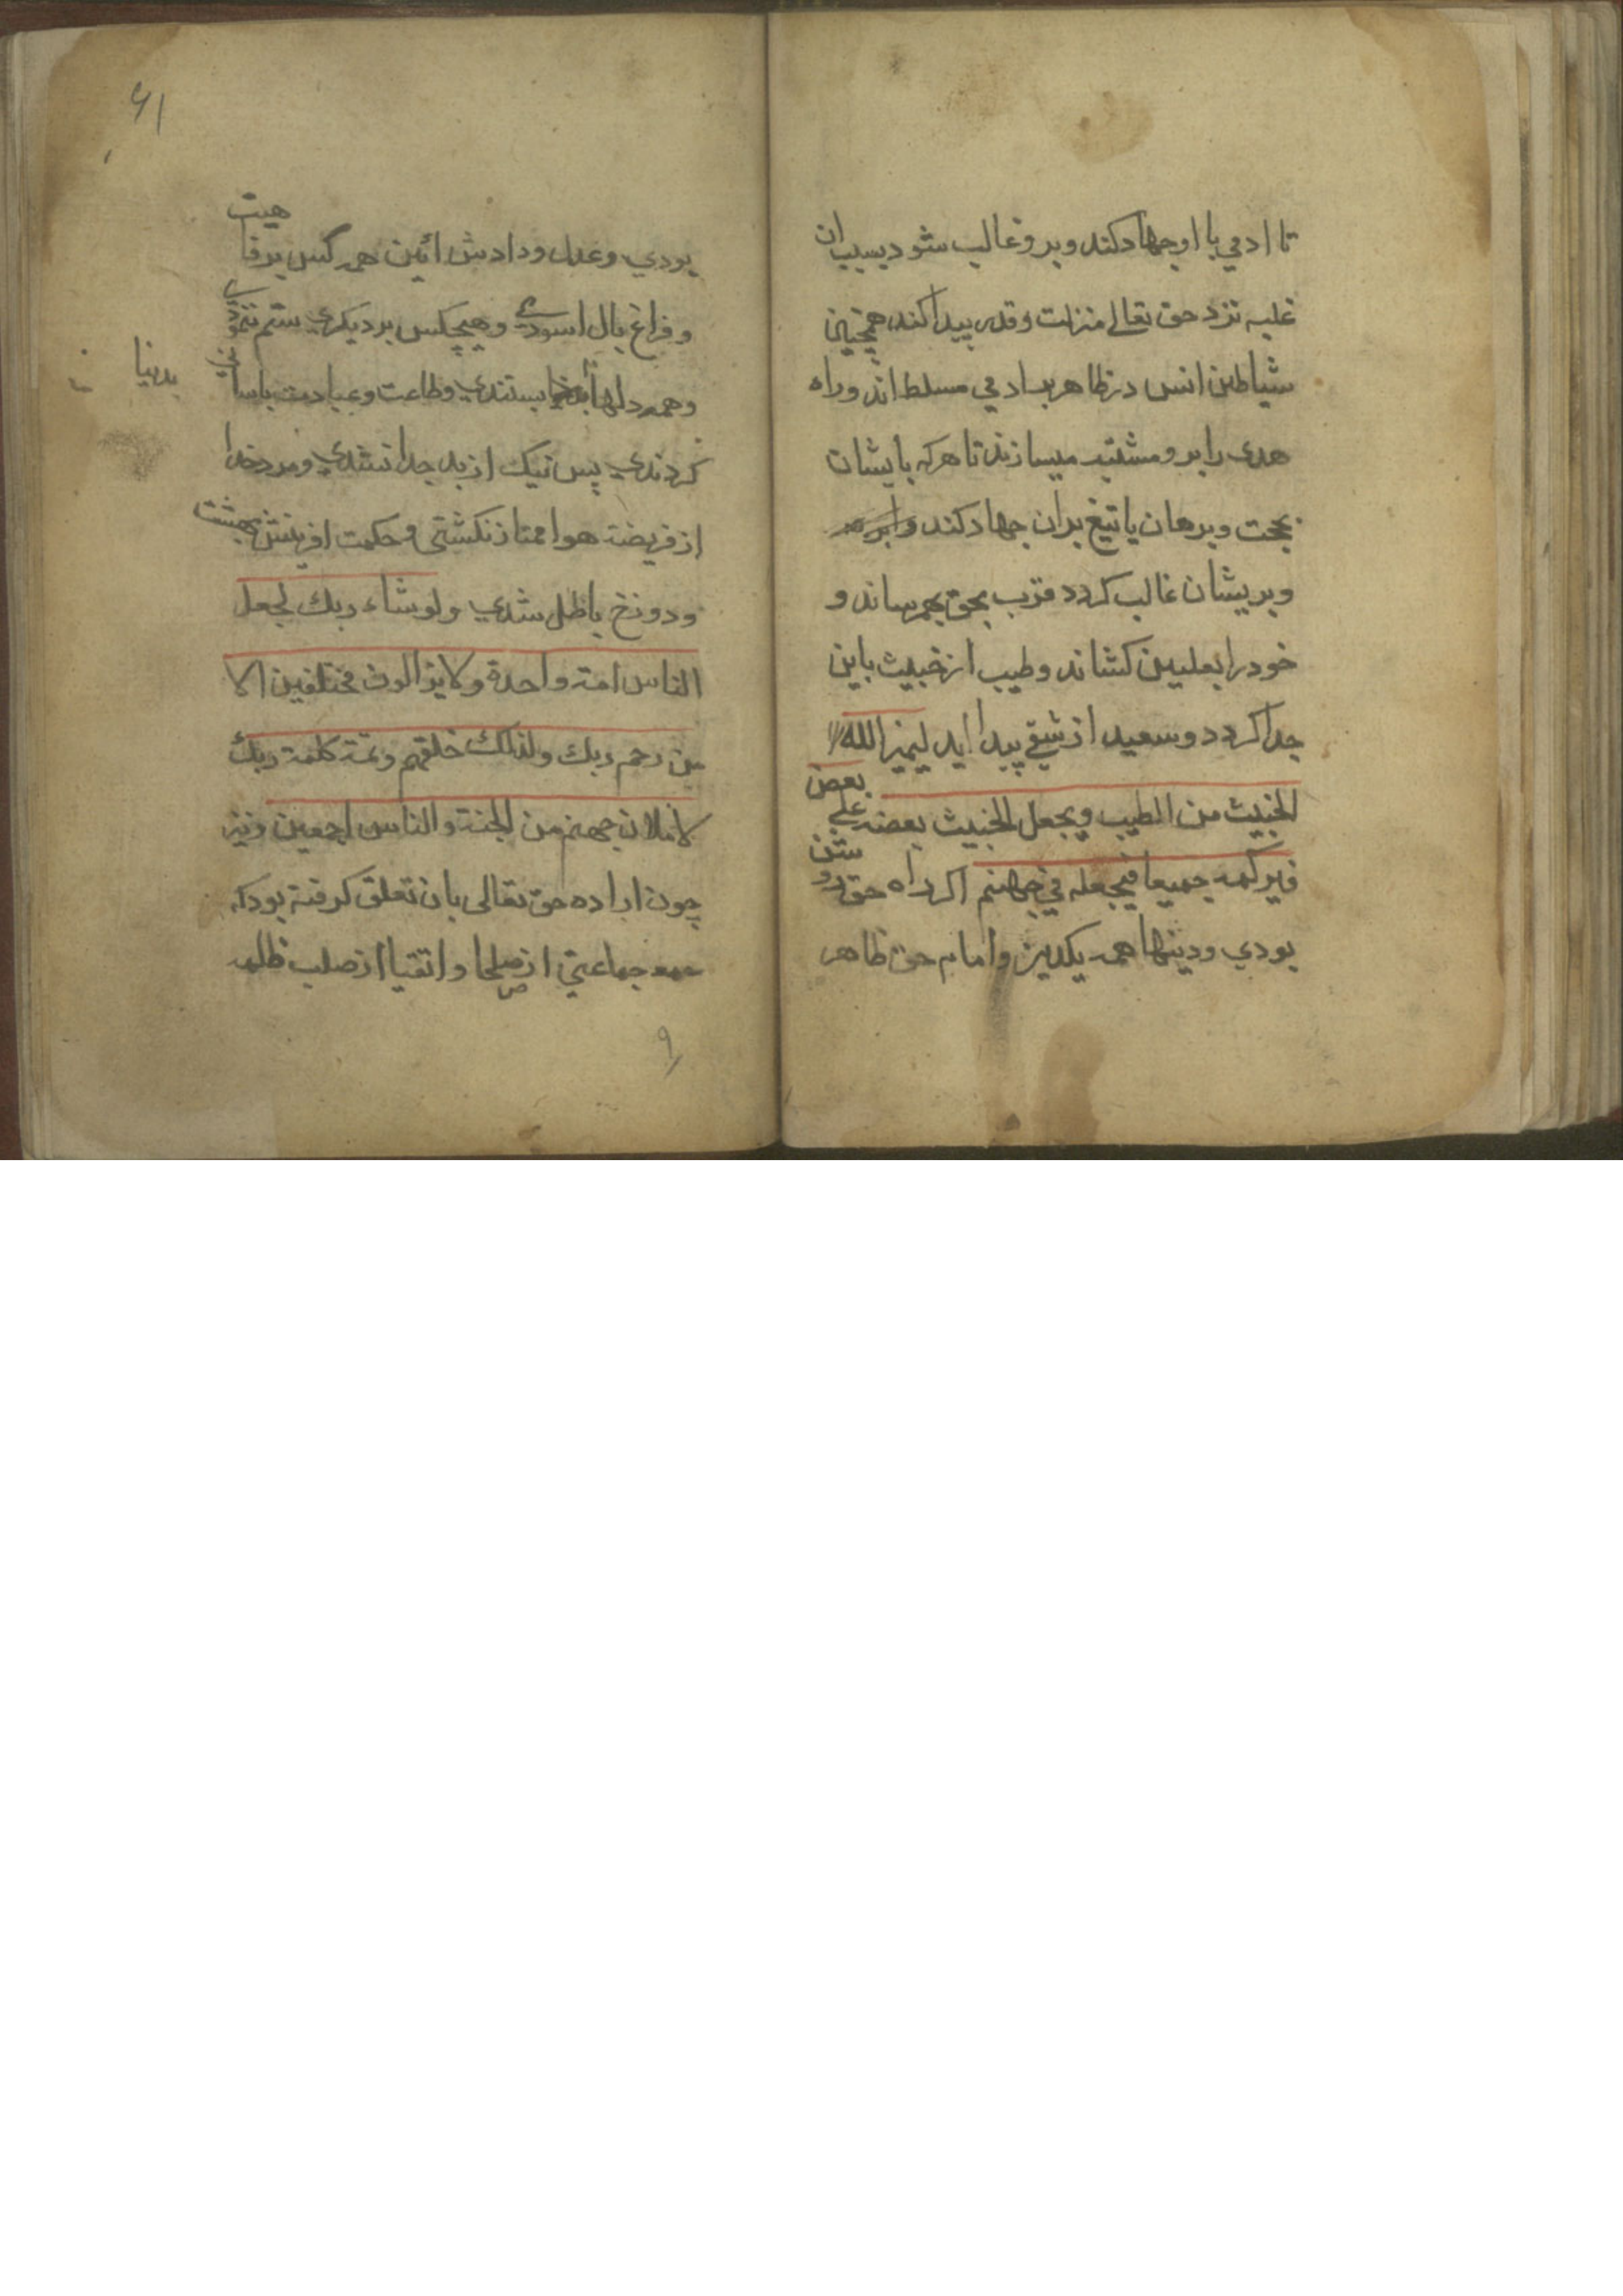 تا ادمي با او جهاد كند و برو غالب شود بسبب ان
غلبه نزد حق تعالے منزلت و قدر پيدا كند همچنين
شياطين انس در ظاهر بر ادمي مسلط اند و راه
هدى را برو مشتبه ميسازند تا هركه با يشان
بحجت و برهان يا تيغ بران جهاد كند
و بريشان غالب كردد قرب بحق بهم رساند و
خود را بعليين كشاند و طيب از خبيث باين
جدا كردد و سعيد از شقي پيدا ايد ليميز الله
الخبيث من الطيب و يجعل الخبيث بعضه علي بعض
فيركمه جميعا فيجعله في جهنم اكر راه حق روشن
بودي و دينها همه يكدين و امام حق ظاهر
۶۱
بودي و عدل و دادش ائين همه كس برفاهيت
و فراغ بال اسودے و هيچكس بر ديكري ستم ننمودے
و همه دلها بستندي و طاعت و عبادت باساني
بدنيا
كردندي پس نيك از بد جدا نشدي و مرد خدا
از فريضه هوا ممتاز نكشتي و حكمت افرينش بهشت
و دوزخ باطل شدي ولو شاء ربك لجعل
الناس امة واحدة ولا يزالون مختلفين الا
من رحم ربك ولذلك خلقهم وتمة كلمة ربك
لاملان جهنم من الجنة والناس اجمعين و نيز
چون اراده حق تعالى بان تعلق كرفته بود كه
جماعتي از صلحا و اتقيا از صلب ظلمه